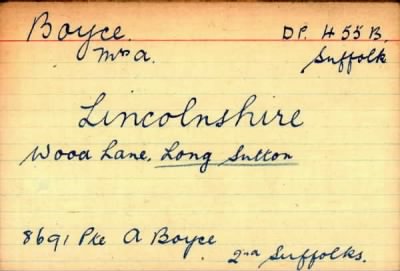 Boyce. DP. 455B.
Mrs A. Suffolk
Lincolnshire
Wood Lane, Long Sutton
8691 Pte A Boyce.
2nd Suffolks.